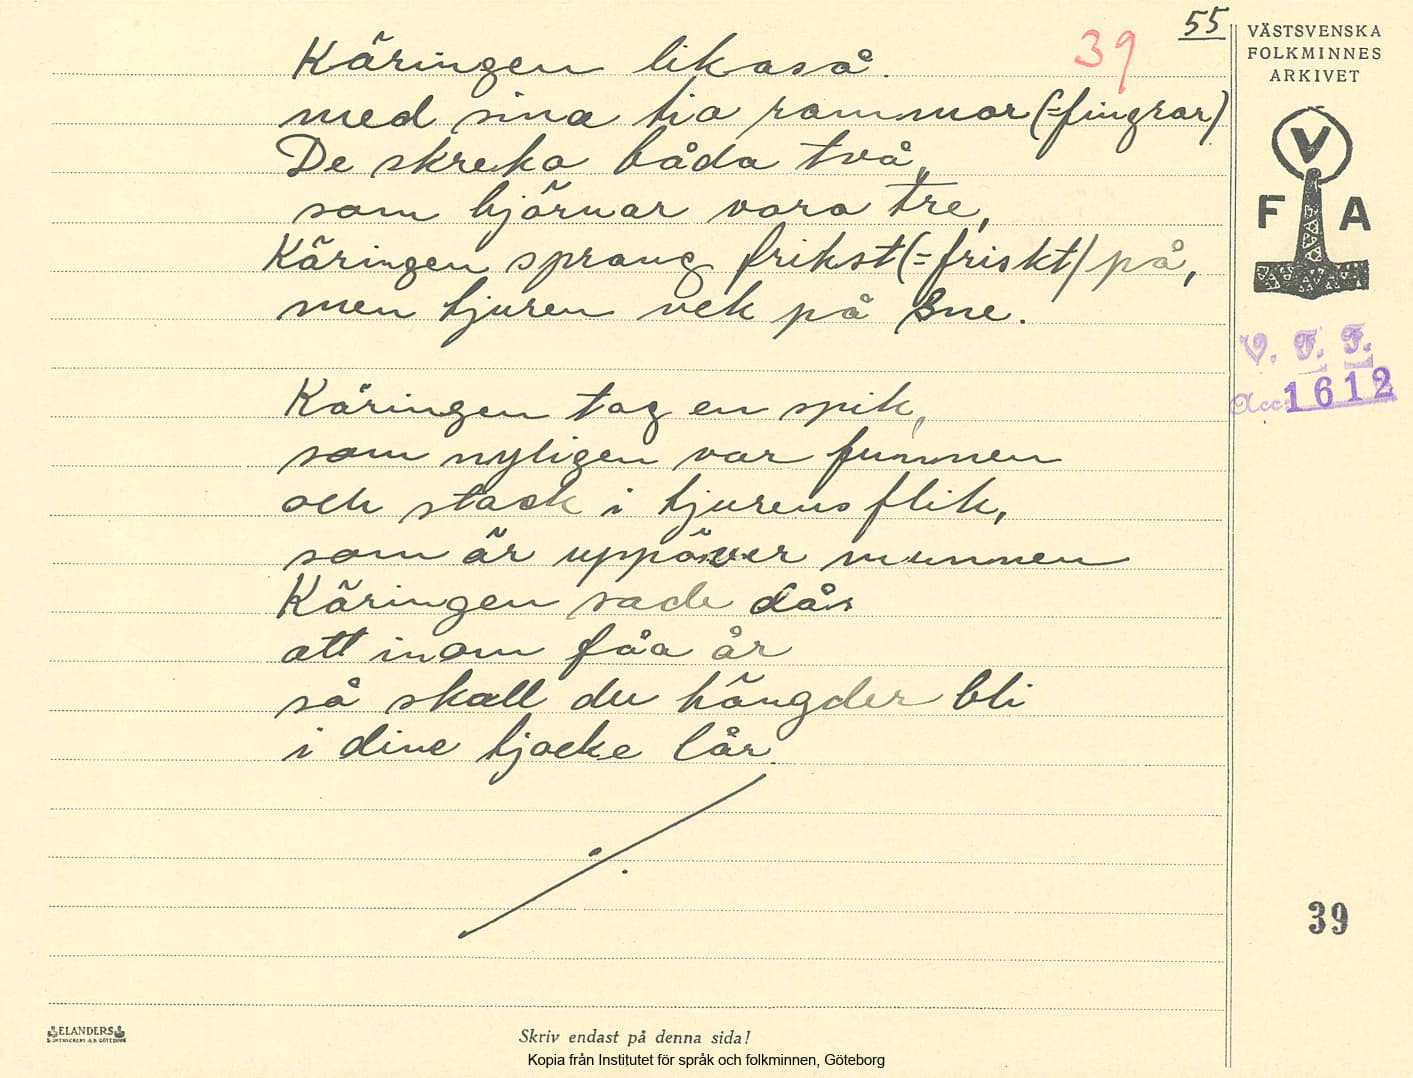 55
39
VÄSTSVENSKA
FOLKMINNES
ARKIVET
V
F A
V. F. F.
Acc: 1612
Käringen likaså.
med sina tio rammar (=fingrar)
De skreko båda två,
som björnar voro tre,
Käringen sprang frikst (=friskt) på,
men tjuren vek på sne.
Käringen tog en spik,
som nyligen var funnen
och stack i tjurens flik,
som är uppöver munnen
Käringen sade där
att inom fåa år
så skall du hängder bli
i dine tjocke lår.
39
ELANDERS
Skriv endast på denna sida!
Kopia från Institutet för språk och folkminnen, Göteborg